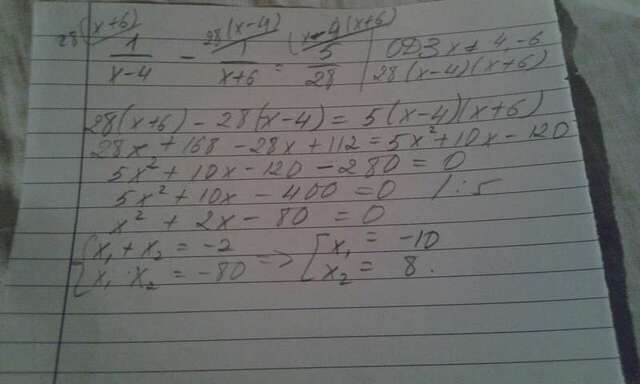 28(x+6) 28(x-4) (x-4)(x+6)
1/(x-4) - 1/(x+6) = 5/28 | ОДЗ x ≠ 4, -6
28(x-4)(x+6)
28(x+6) - 28(x-4) = 5(x-4)(x+6)
28x + 168 - 28x + 112 = 5x² + 10x - 120
5x² + 10x - 120 - 280 = 0
5x² + 10x - 400 = 0 /:5
x² + 2x - 80 = 0
{x₁ + x₂ = -2 => [x₁ = -10
{x₁ · x₂ = -80 [x₂ = 8.